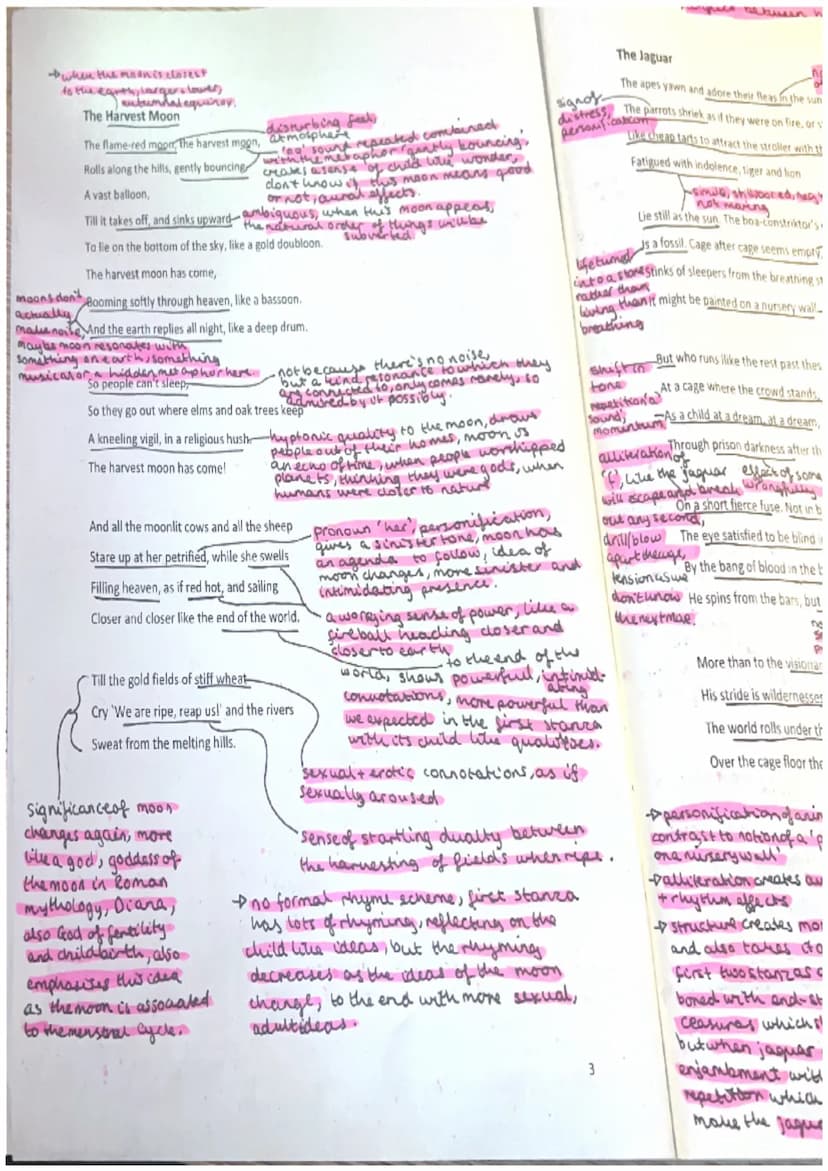 →when the moon is closest
to the earth, larger + lower,
autumnal equinox.
The Harvest Moon
disturbing feel,
atmosphere
The flame-red moon, the harvest moon,
'oo' sound repeated combined
with the metaphor 'gently bouncing',
creates a sense of child like wonder,
don't know if this moon means good
or not, aural effects.
Rolls along the hills, gently bouncing,
A vast balloon,
Till it takes off, and sinks upward
ambiguous, when this moon appears,
the natural order of things will be
subverted.
To lie on the bottom of the sky, like a gold doubloon.
The harvest moon has come,
Booming softly through heaven, like a bassoon.
And the earth replies all night, like a deep drum.
moons don't
actually
make noise,
maybe moon resonates with
something on earth, something
musical or a hidden metaphor here.
So people can't sleep,
not because there's no noise,
but a kind resonance to which they
are connected to, only comes rarely, so
admired by it possibly.
So they go out where elms and oak trees keep
A kneeling vigil, in a religious hush.
The harvest moon has come!
hyptonic quality to the moon, draws
people out of their homes, moon is
an echo of time, when people worshipped
planets, thinking they were gods, when
humans were closer to nature
And all the moonlit cows and all the sheep
Stare up at her petrified, while she swells
Filling heaven, as if red hot, and sailing
Closer and closer like the end of the world.
pronoun 'her', personification,
gives a sinister tone, moon has
an agenda to follow, idea of
moon changes, more sinister and
intimidating presence.
a worrying sense of power, like a
fireball heading closer and
closer to earth
to the end of the
world, shows powerful, intimid-
ating
connotations, more powerful than
we expected in the first stanza
with its child like qualities.
Till the gold fields of stiff wheat
Cry 'We are ripe, reap us!' and the rivers
Sweat from the melting hills.
sexual + erotic connotations, as if
sexually aroused
sense of startling duality between
the harvesting of fields when ripe.
significance of moon
changes again, more
like a god, goddess of
the moon in Roman
mythology, Diana,
also God of fertility
and childbirth, also
emphasises this idea
as the moon is associated
to the menstrual cycle.
→ no formal rhyme scheme, first stanza
has lots of rhyming, reflecting on the
child like ideas, but the rhyming
decreases as the ideas of the moon
change, to the end with more sexual,
adult ideas.
3
between
The Jaguar
The apes yawn and adore their fleas in the sun
sign of
distress,
personification
The parrots shriek as if they were on fire, or
Like cheap tarts to attract the stroller with
Fatigued with indolence, tiger and lion
not moving
Lie still as the sun. The boa-constrictor's
Is a fossil. Cage after cage seems empty,
Stinks of sleepers from the breathing
It might be painted on a nursery wall.
life turned
into a stone
rather than
living than
breathing
But who runs like the rest past
At a cage where the crowd stands,
As a child at a dream, at a dream,
Through prison darkness after
On a short fierce fuse. Not in
The eye satisfied to be blind
By the bang of blood in the
He spins from the bars, but
shift in
tone
repetition 'a'
sound,
momentum
alliteration of
'f', like the jaguar
will escape and break
out any second,
drill/blow
apart the cage,
tension as we
don't know
the next move.
effect of some
wrongfully
More than to the visionary
His stride is wildernesses
The world rolls under
Over the cage floor the
→personification of
contrast to notion of a
on a nursery wall'
→alliteration creates
+ rhythm effects
→ structure creates
and also takes
first two stanzas
boned with end-
ceasuras which
but when jaguar
enjambment with
repetition which
make the